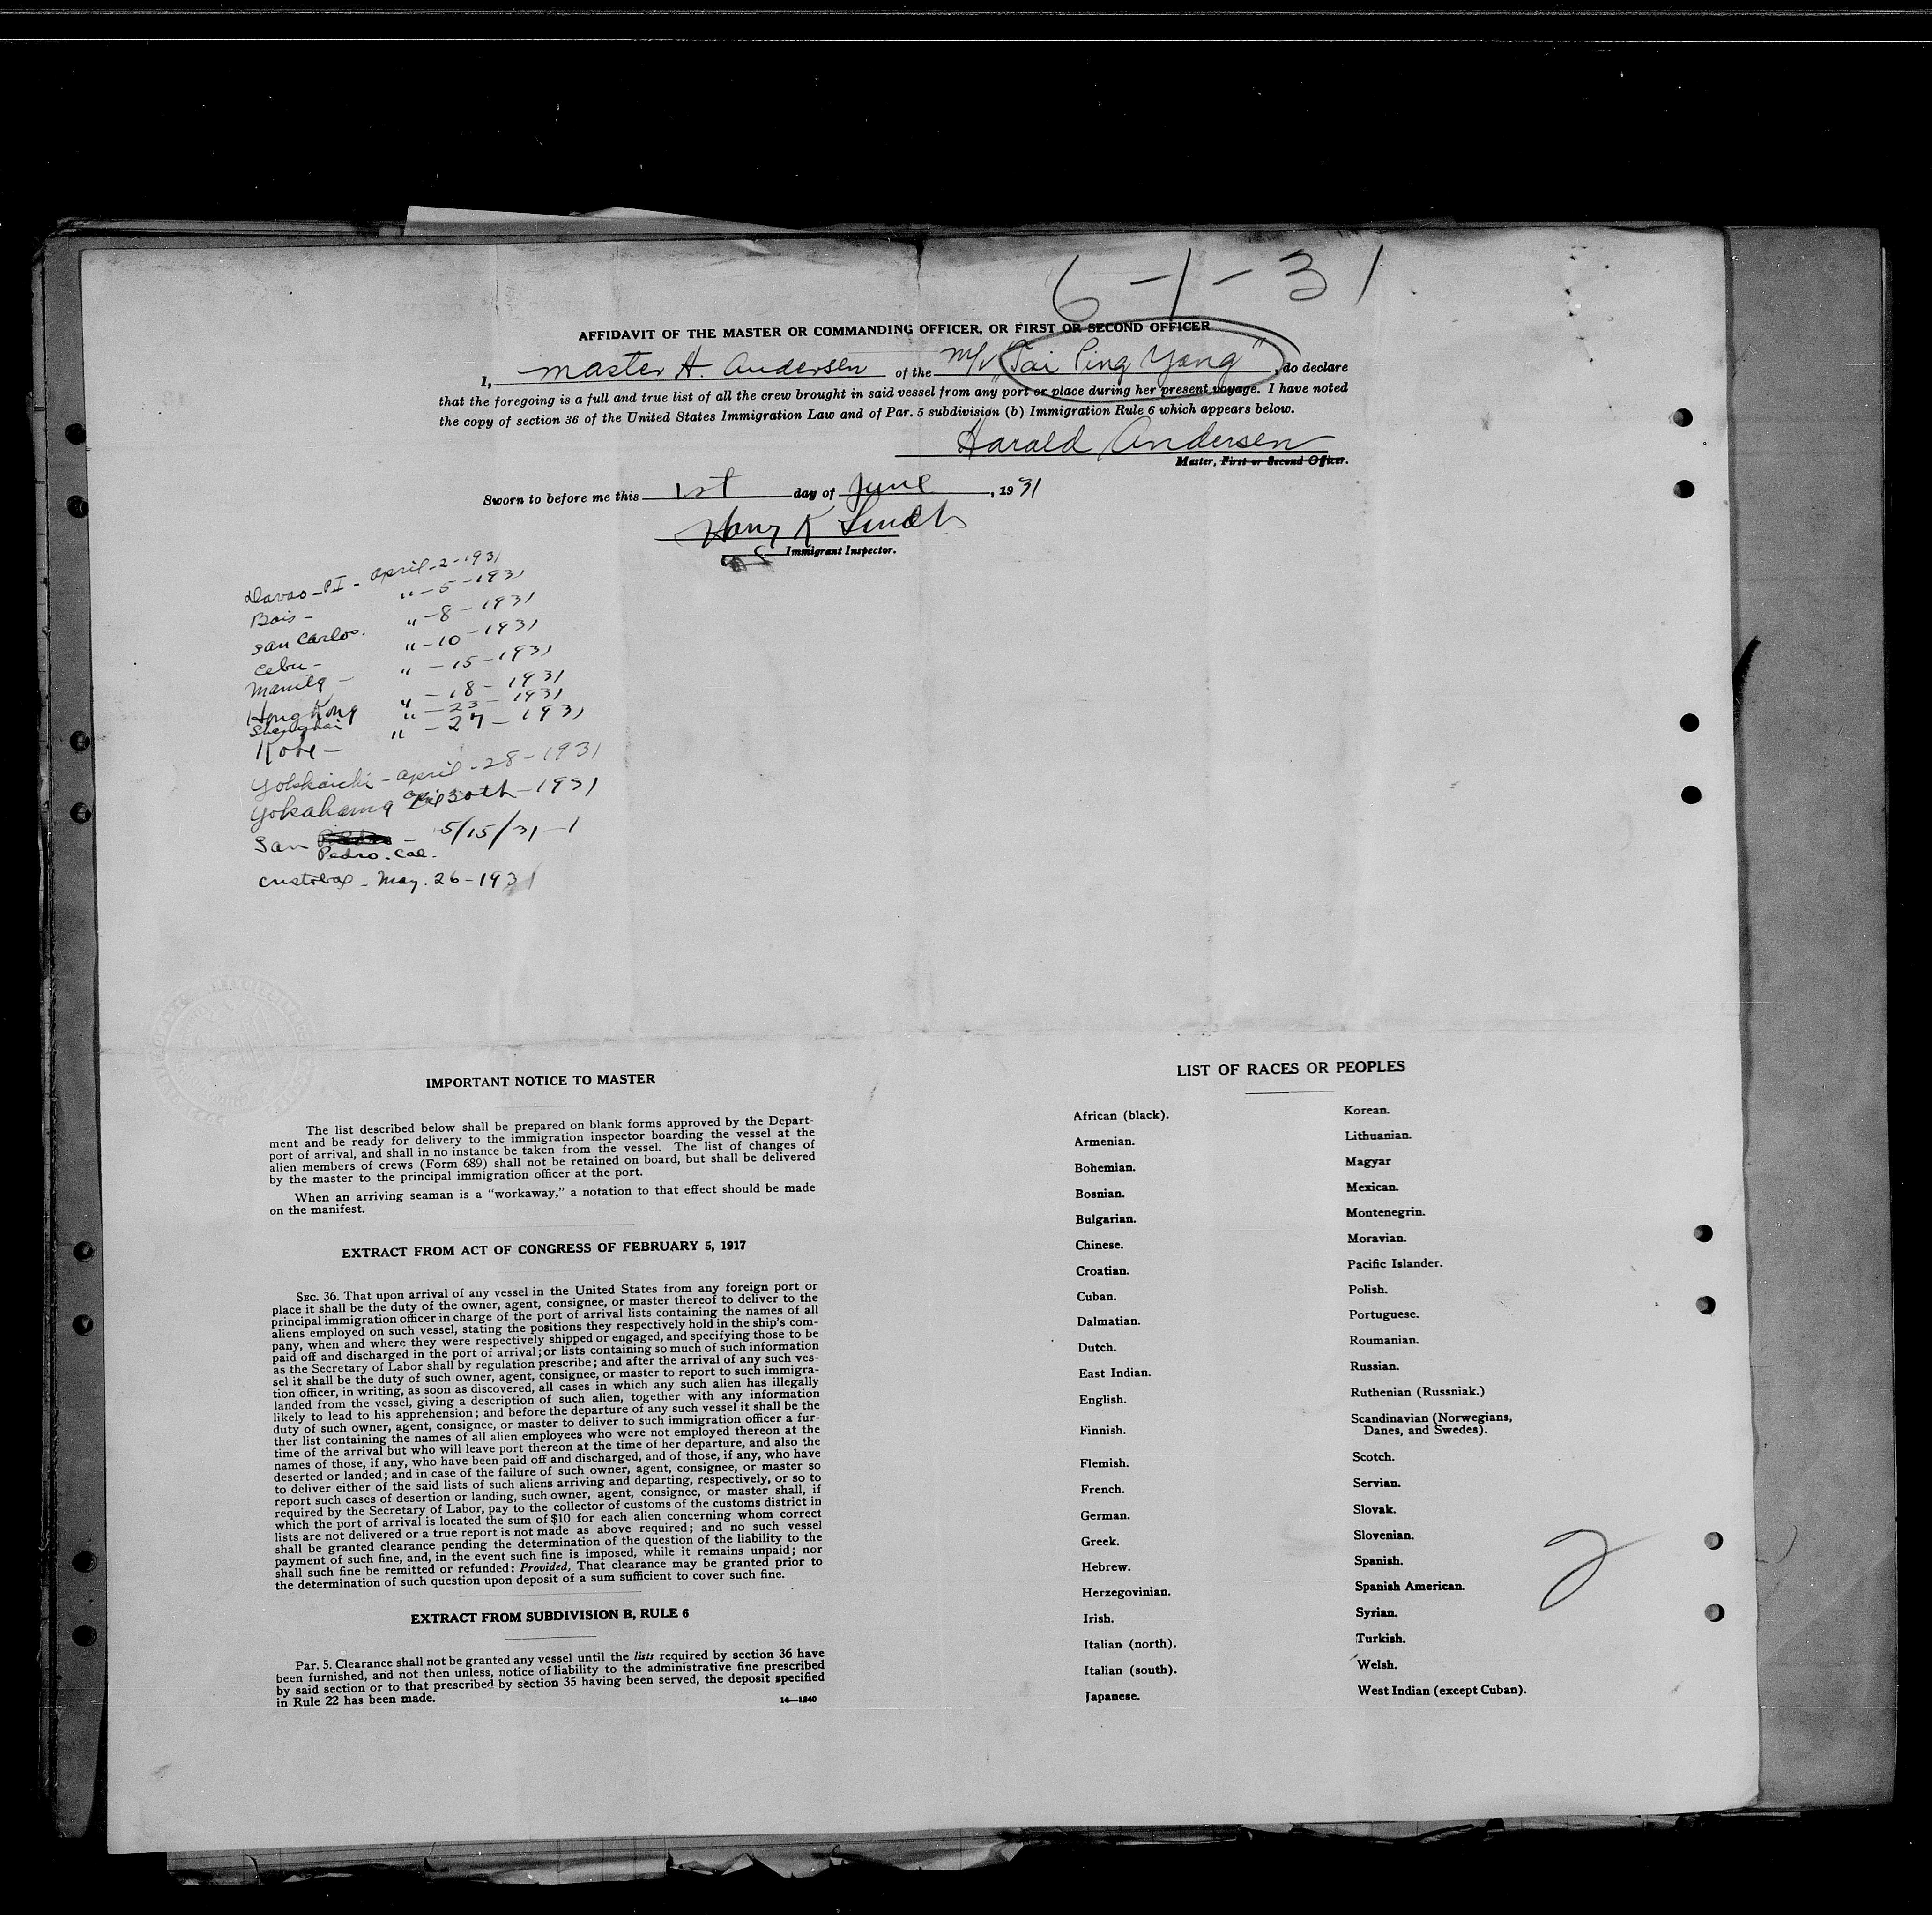 6-1-31
AFFIDAVIT OF THE MASTER OR COMMANDING OFFICER, OR FIRST OR SECOND OFFICER
I, Master H. Andersen of the M/V "Tai Ping Yang", do declare
that the foregoing is a full and true list of all the crew brought in said vessel from any port or place during her present voyage. I have noted
the copy of section 36 of the United States Immigration Law and of Par. 5 subdivision (b) Immigration Rule 6 which appears below.
Harald Andersen
Master, First or Second Officer.
Sworn to before me this 1st day of June, 1931
Harry K
Immigrant Inspector.
Davao-PI- April-2-1931
Bais- " -5-1931
San Carlos. " -8-1931
Cebu- " -10-1931
Manila- " -15-1931
Hong Kong " -18-1931
Shanghai " -23-1931
Kobe- " -27-1931
Yokkaichi-April-28-1931
Yokahama April 30th-1931
San - 5/15/31-1
Pedro. Cal.
Cristobal-May.26-1931
IMPORTANT NOTICE TO MASTER
The list described below shall be prepared on blank forms approved by the Depart-
ment and be ready for delivery to the immigration inspector boarding the vessel at the
port of arrival, and shall in no instance be taken from the vessel. The list of changes of
alien members of crews (Form 689) shall not be retained on board, but shall be delivered
by the master to the principal immigration officer at the port.
When an arriving seaman is a "workaway," a notation to that effect should be made
on the manifest.
EXTRACT FROM ACT OF CONGRESS OF FEBRUARY 5, 1917
SEC. 36. That upon arrival of any vessel in the United States from any foreign port or
place it shall be the duty of the owner, agent, consignee, or master thereof to deliver to the
principal immigration officer in charge of the port of arrival lists containing the names of all
aliens employed on such vessel, stating the positions they respectively hold in the ship's com-
pany, when and where they were respectively shipped or engaged, and specifying those to be
paid off and discharged in the port of arrival; or lists containing so much of such information
as the Secretary of Labor shall by regulation prescribe; and after the arrival of any such ves-
sel it shall be the duty of such owner, agent, consignee, or master to report to such immigra-
tion officer, in writing, as soon as discovered, all cases in which any such alien has illegally
landed from the vessel, giving a description of such alien, together with any information
likely to lead to his apprehension; and before the departure of any such vessel it shall be the
duty of such owner, agent, consignee, or master to deliver to such immigration officer a fur-
ther list containing the names of all alien employees who were not employed thereon at the
time of the arrival but who will leave port thereon at the time of her departure, and also the
names of those, if any, who have been paid off and discharged, and of those, if any, who have
deserted or landed; and in case of the failure of such owner, agent, consignee, or master so
to deliver either of the said lists of such aliens arriving and departing, respectively, or so to
report such cases of desertion or landing, such owner, agent, consignee, or master shall, if
required by the Secretary of Labor, pay to the collector of customs of the customs district in
which the port of arrival is located the sum of $10 for each alien concerning whom correct
lists are not delivered or a true report is not made as above required; and no such vessel
shall be granted clearance pending the determination of the question of the liability to the
payment of such fine, and, in the event such fine is imposed, while it remains unpaid; nor
shall such fine be remitted or refunded: Provided, That clearance may be granted prior to
the determination of such question upon deposit of a sum sufficient to cover such fine.
EXTRACT FROM SUBDIVISION B, RULE 6
Par. 5. Clearance shall not be granted any vessel until the lists required by section 36 have
been furnished, and not then unless, notice of liability to the administrative fine prescribed
by said section or to that prescribed by section 35 having been served, the deposit specified
in Rule 22 has been made.
14—1240
LIST OF RACES OR PEOPLES
African (black).
Armenian.
Bohemian.
Bosnian.
Bulgarian.
Chinese.
Croatian.
Cuban.
Dalmatian.
Dutch.
East Indian.
English.
Finnish.
Flemish.
French.
German.
Greek.
Hebrew.
Herzegovinian.
Irish.
Italian (north).
Italian (south).
Japanese.
Korean.
Lithuanian.
Magyar
Mexican.
Montenegrin.
Moravian.
Pacific Islander.
Polish.
Portuguese.
Roumanian.
Russian.
Ruthenian (Russniak.)
Scandinavian (Norwegians,
Danes, and Swedes).
Scotch.
Servian.
Slovak.
Slovenian.
Spanish.
Spanish American.
Syrian.
Turkish.
Welsh.
West Indian (except Cuban).
2